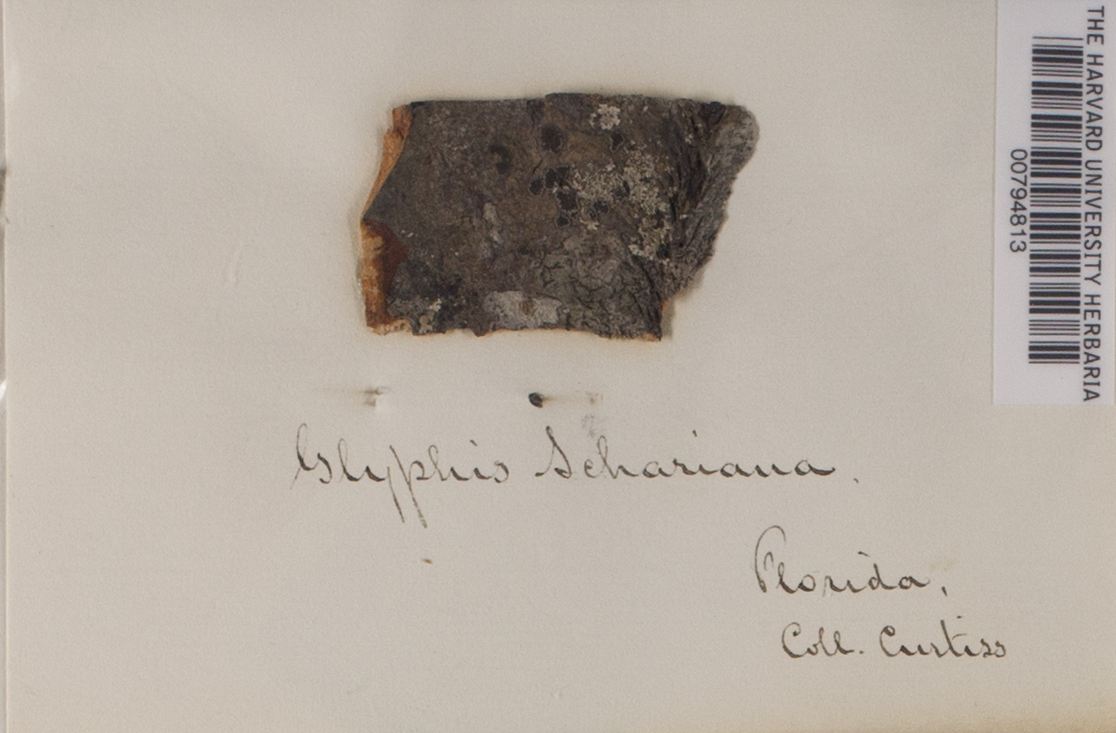 THE HARVARD UNIVERSITY HERBARIA
00794813
Glyphis Achariana.
Florida,
Coll. Curtiss